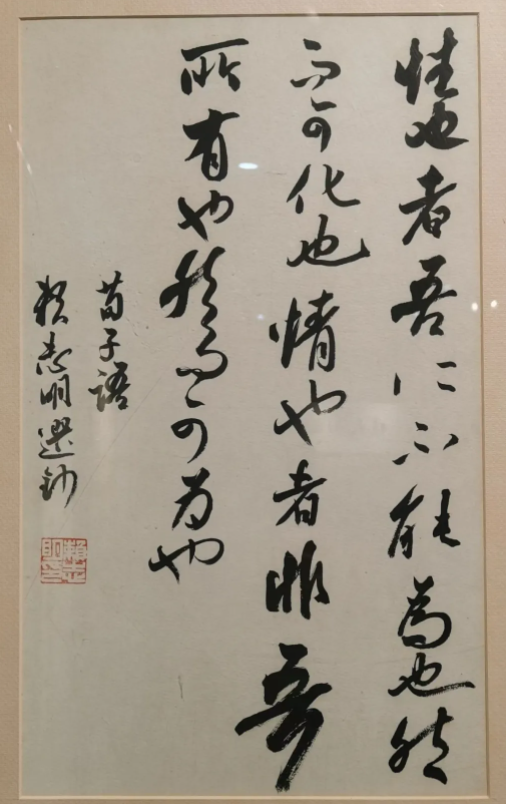 性也者吾所不能為也然
而可化也情也者非吾
所有也然而可為也
荀子語
賴志明選鈔
賴志
明印